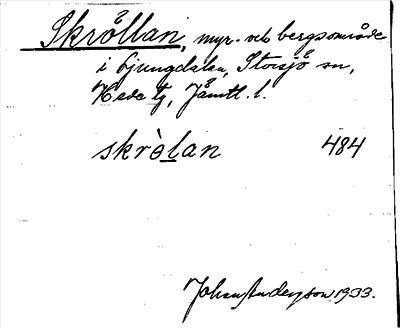 Skröllan, myr- och bergsområde
i Ljungdalen, Storsjö sn,
Hede tg, Jämtl. l.
skrò̀lan 484
Johan Anderson 1933.